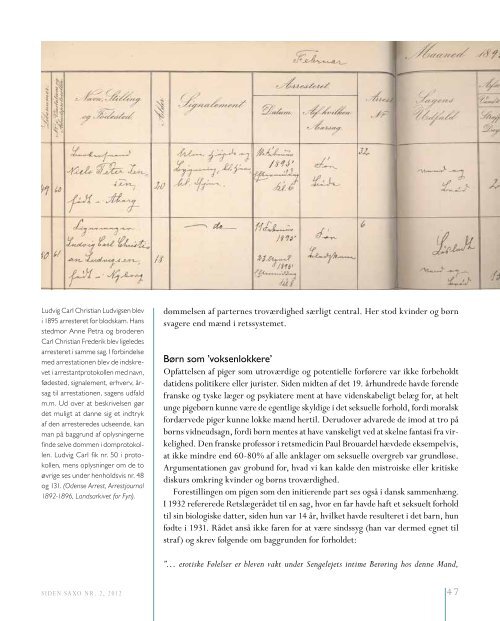 Februar
Maaned 189
Løbenummer.
Navn, Stilling
og Fødested.
Alder
Signalement
Arresteret.
Datum.
Af hvilken
Aarsag.
Arrest
Nº
Sagens
Udfald
Straf
Niels Peter Jen
sen,
20
1895
32
49 60
Ludvig Carl Christi
an Ludvigsen,
18
do
1895
6
50 61
Ludvig Carl Christian Ludvigsen blev
i 1895 arresteret for blodskam. Hans
stedmor Anne Petra og broderen
Carl Christian Frederik blev ligeledes
arresteret i samme sag. I forbindelse
med arrestationen blev de indskre-
vet i arrestantprotokollen med navn,
fødested, signalement, erhverv, år-
sag til arrestationen, sagens udfald
m.m. Ud over at beskrivelsen gør
det muligt at danne sig et indtryk
af den arresteredes udseende, kan
man på baggrund af oplysningerne
finde selve dommen i domprotokol-
len. Ludvig Carl fik nr. 50 i proto-
kollen, mens oplysninger om de to
øvrige ses under henholdsvis nr. 48
og 131. (Odense Arrest, Arrestjournal
1892-1896, Landsarkivet for Fyn).
dømmelsen af parternes troværdighed særligt central. Her stod kvinder og børn
svagere end mænd i retssystemet.
Børn som ’voksenlokkere’
Opfattelsen af piger som utroværdige og potentielle forførere var ikke forbeholdt
datidens politikere eller jurister. Siden midten af det 19. århundrede havde førende
franske og tyske læger og psykiatere ment at have videnskabeligt belæg for, at helt
unge pigebørn kunne være de egentlige skyldige i det seksuelle forhold, fordi moralsk
fordærvede piger kunne lokke mænd hertil. Derudover advarede de imod at tro på
børns vidneudsagn, fordi børn mentes at have vanskeligt ved at skelne fantasi fra vir-
kelighed. Den franske professor i retsmedicin Paul Brouardel hævdede eksempelvis,
at ikke mindre end 60-80% af alle anklager om seksuelle overgreb var grundløse.
Argumentationen gav grobund for, hvad vi kan kalde den mistroiske eller kritiske
diskurs omkring kvinder og børns troværdighed.
Forestillingen om pigen som den initierende part ses også i dansk sammenhæng.
I 1932 refererede Retslægerådet til en sag, hvor en far havde haft et seksuelt forhold
til sin biologiske datter, siden hun var 14 år, hvilket havde resulteret i det barn, hun
fødte i 1931. Rådet anså ikke faren for at være sindssyg (han var dermed egnet til
straf) og skrev følgende om baggrunden for forholdet:
“… erotiske Følelser er bleven vakt under Sengelejets intime Berøring hos denne Mand,
SIDEN SAXO NR. 2, 2012
47